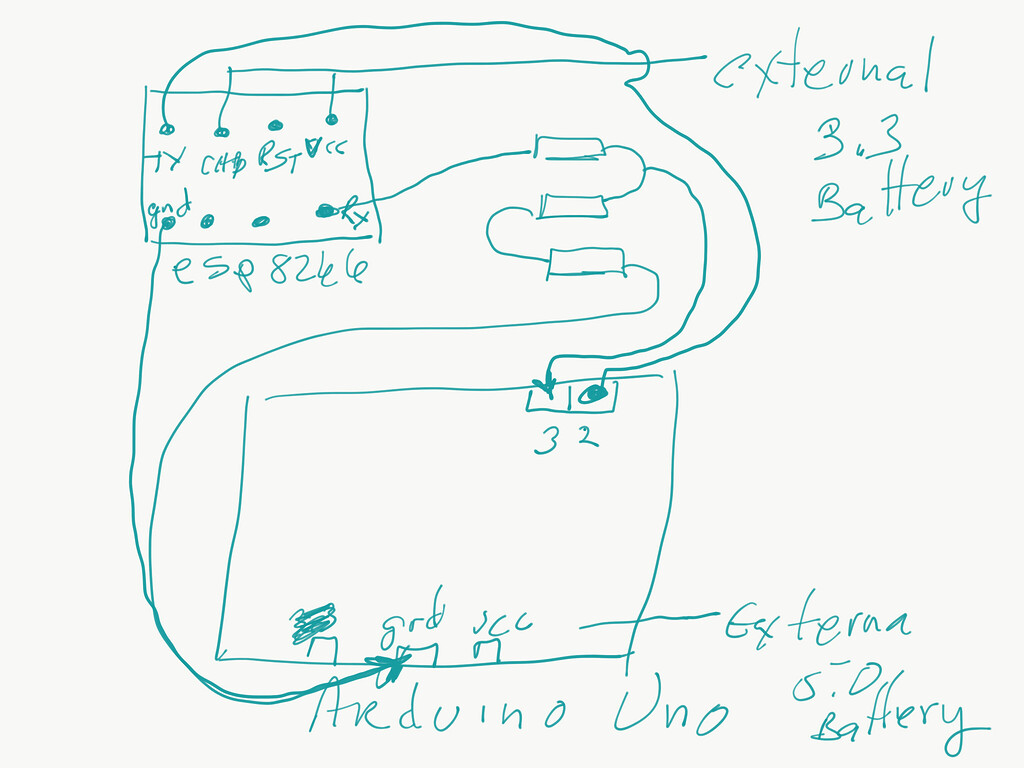 external
3.3
Battery
TX CHPD RST Vcc
gnd Rx
esp 8266
3 2
grd vcc
Externa
5.0
Battery
Arduino Uno